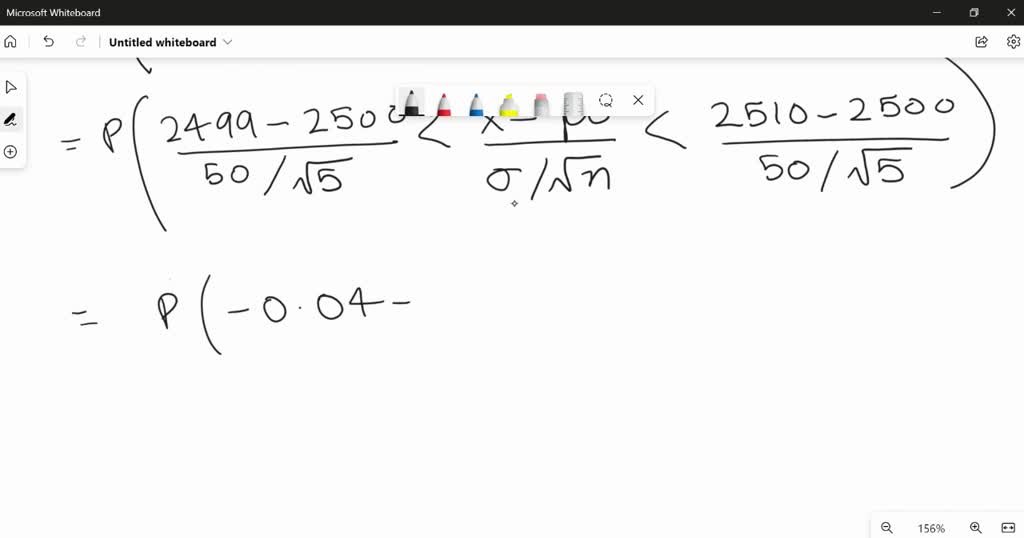 Microsoft Whiteboard
Untitled whiteboard
= P( (2499 - 2500)/(50/√5) < (x - μ)/(σ/√n) < (2510 - 2500)/(50/√5) )
= P( -0.04 -
156%